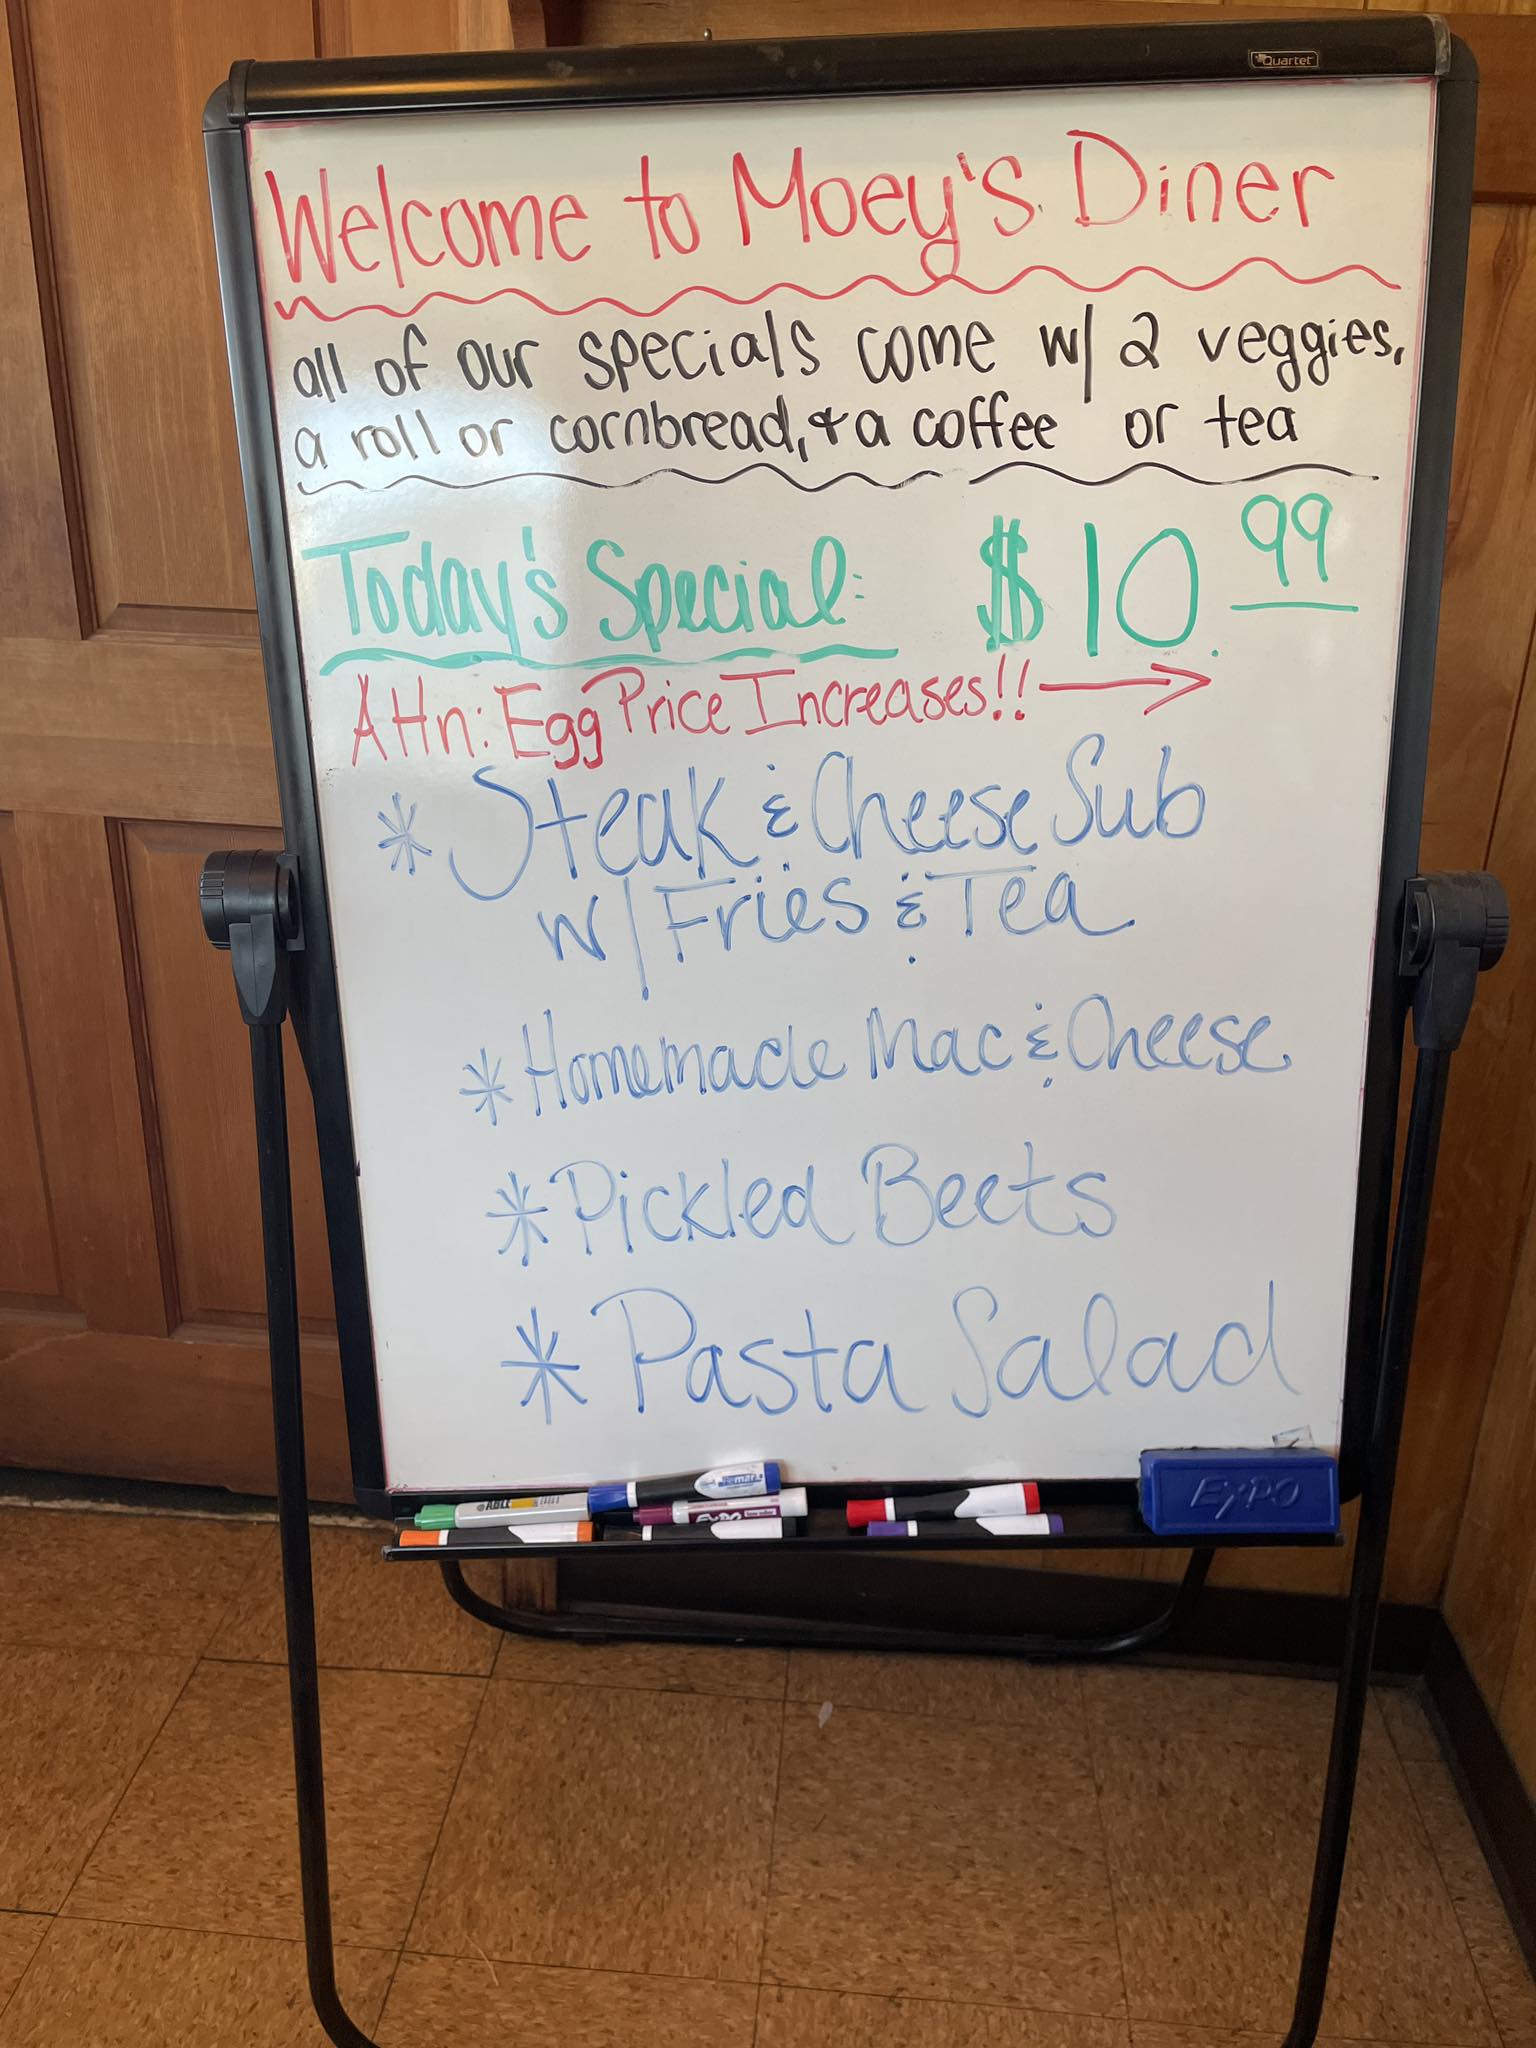 Quartet
Welcome to Moey's Diner
all of our specials come w/ 2 veggies,
a roll or cornbread, & a coffee or tea
Today's Special: $10.99
Attn: Egg Price Increases!! →
* Steak & Cheese Sub
w/ Fries & Tea
* Homemade Mac & Cheese
* Pickled Beets
* Pasta Salad
EXPO
EXPO